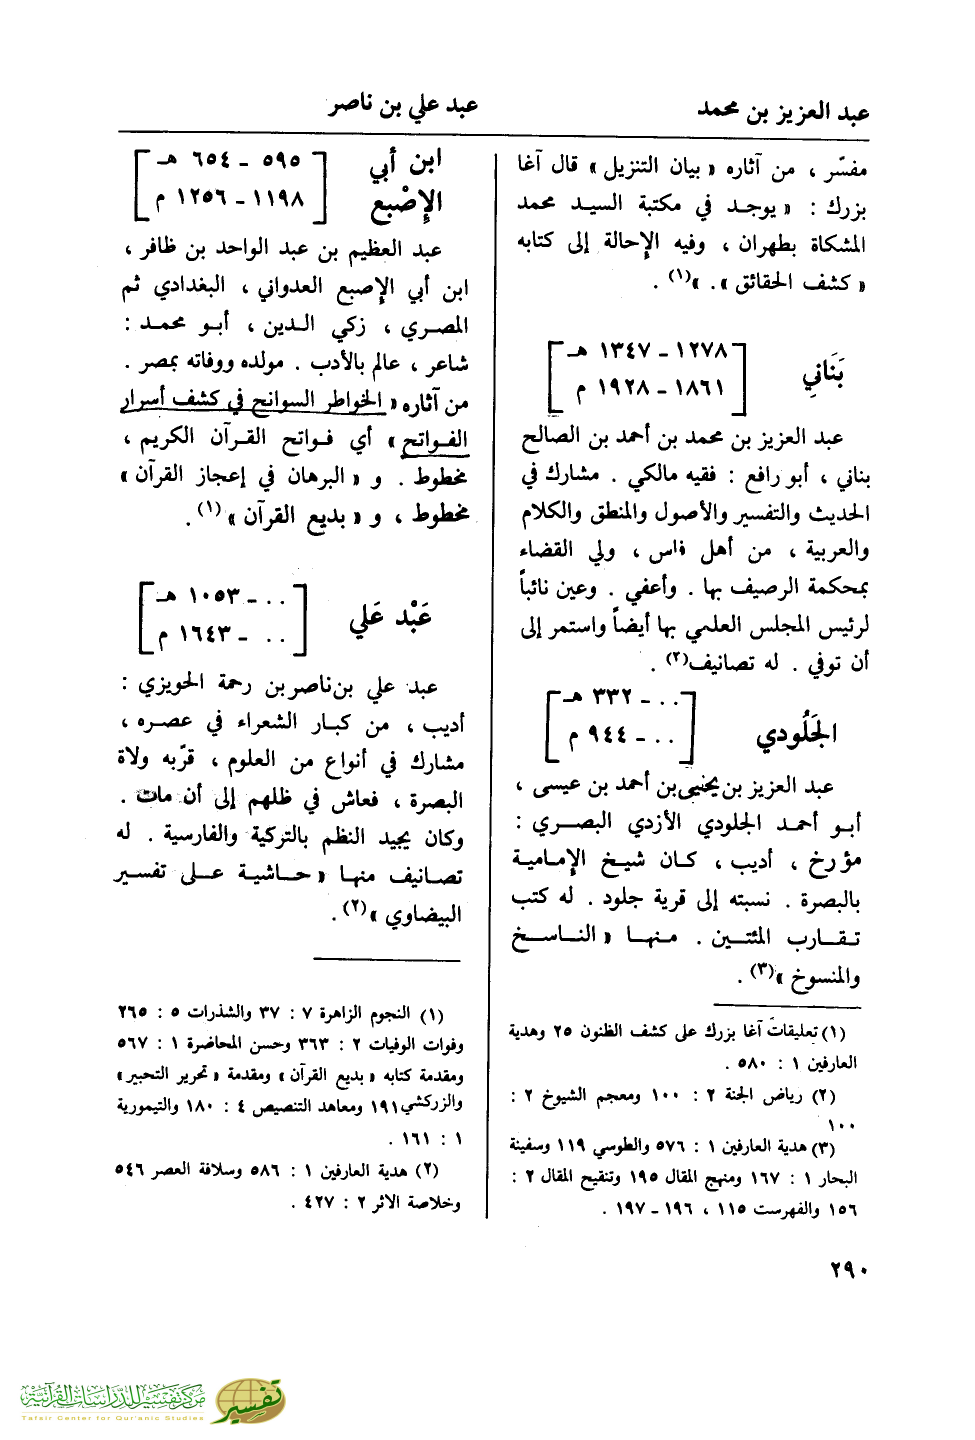 عبد العزيز بن محمد
عبد علي بن ناصر
مفسّر ، من آثاره « بيان التنزيل » قال آغا
بزرك : « يوجد في مكتبة السيد محمد
المشكاة بطهران ، وفيه الإحالة إلى كتابه
« كشف الحقائق » . »(١) .
بَنَاني
١٢٧٨ - ١٣٤٧ هـ
١٨٦١ - ١٩٢٨ م
عبد العزيز بن محمد بن أحمد بن الصالح
بناني ، أبو رافع : فقيه مالكي . مشارك في
الحديث والتفسير والأصول والمنطق والكلام
والعربية ، من أهل فاس ، ولي القضاء
بمحكمة الرصيف بها . وأعفي . وعين نائباً
لرئيس المجلس العلمي بها أيضاً واستمر إلى
أن توفي . له تصانيف(٢) .
الجَلُودي
.. - ٣٣٢ هـ
.. - ٩٤٤ م
عبد العزيز بن يحيى بن أحمد بن عيسى ،
أبو أحمد الجلودي الأزدي البصري :
مؤرخ ، أديب ، كان شيخ الإمامية
بالبصرة . نسبته إلى قرية جلود . له كتب
تقارب المئتين . منها « الناسخ
والمنسوخ »(٣) .
(١) تعليقات آغا بزرك على كشف الظنون ٢٥ وهدية
العارفين ١ : ٥٨٠ .
(٢) رياض الجنة ٢ : ١٠٠ ومعجم الشيوخ ٢ :
١٠٠
(٣) هدية العارفين ١ : ٥٧٦ والطوسي ١١٩ وسفينة
البحار ١ : ١٦٧ ومنهج المقال ١٩٥ وتنقيح المقال ٢ :
١٥٦ والفهرست ١١٥ ، ١٩٦ - ١٩٧ .
ابن أبي
الإِصْبع
٥٩٥ - ٦٥٤ هـ
١١٩٨ - ١٢٥٦ م
عبد العظيم بن عبد الواحد بن ظافر ،
ابن أبي الإصبع العدواني ، البغدادي ثم
المصري ، زكي الدين ، أبو محمد :
شاعر ، عالم بالأدب . مولده ووفاته بمصر .
من آثاره « الخواطر السوانح في كشف أسرار
الفواتح » أي فواتح القرآن الكريم ،
مخطوط . و « البرهان في إعجاز القرآن »
مخطوط ، و « بديع القرآن »(١) .
عَبْد عَلي
.. - ١٠٥٣ هـ
.. - ١٦٤٣ م
عبد علي بن ناصر بن رحمة الحويزي :
أديب ، من كبار الشعراء في عصره ،
مشارك في أنواع من العلوم ، قرّبه ولاة
البصرة ، فعاش في ظلهم إلى أن مات .
وكان يجيد النظم بالتركية والفارسية . له
تصانيف منها « حاشية على تفسير
البيضاوي »(٢) .
(١) النجوم الزاهرة ٧ : ٣٧ والشذرات ٥ : ٢٦٥
وفوات الوفيات ٢ : ٣٦٣ وحسن المحاضرة ١ : ٥٦٧
ومقدمة كتابه « بديع القرآن » ومقدمة « تحرير التحبير »
والزركشي ١٩١ ومعاهد التنصيص ٤ : ١٨٠ والتيمورية
١ : ١٦١ .
(٢) هدية العارفين ١ : ٥٨٦ وسلافة العصر ٥٤٦
وخلاصة الاثر ٢ : ٤٢٧ .
٢٩٠
مركز تفسير للدراسات القرآنية
Tafsir Center for Qur'anic Studies
تفسير